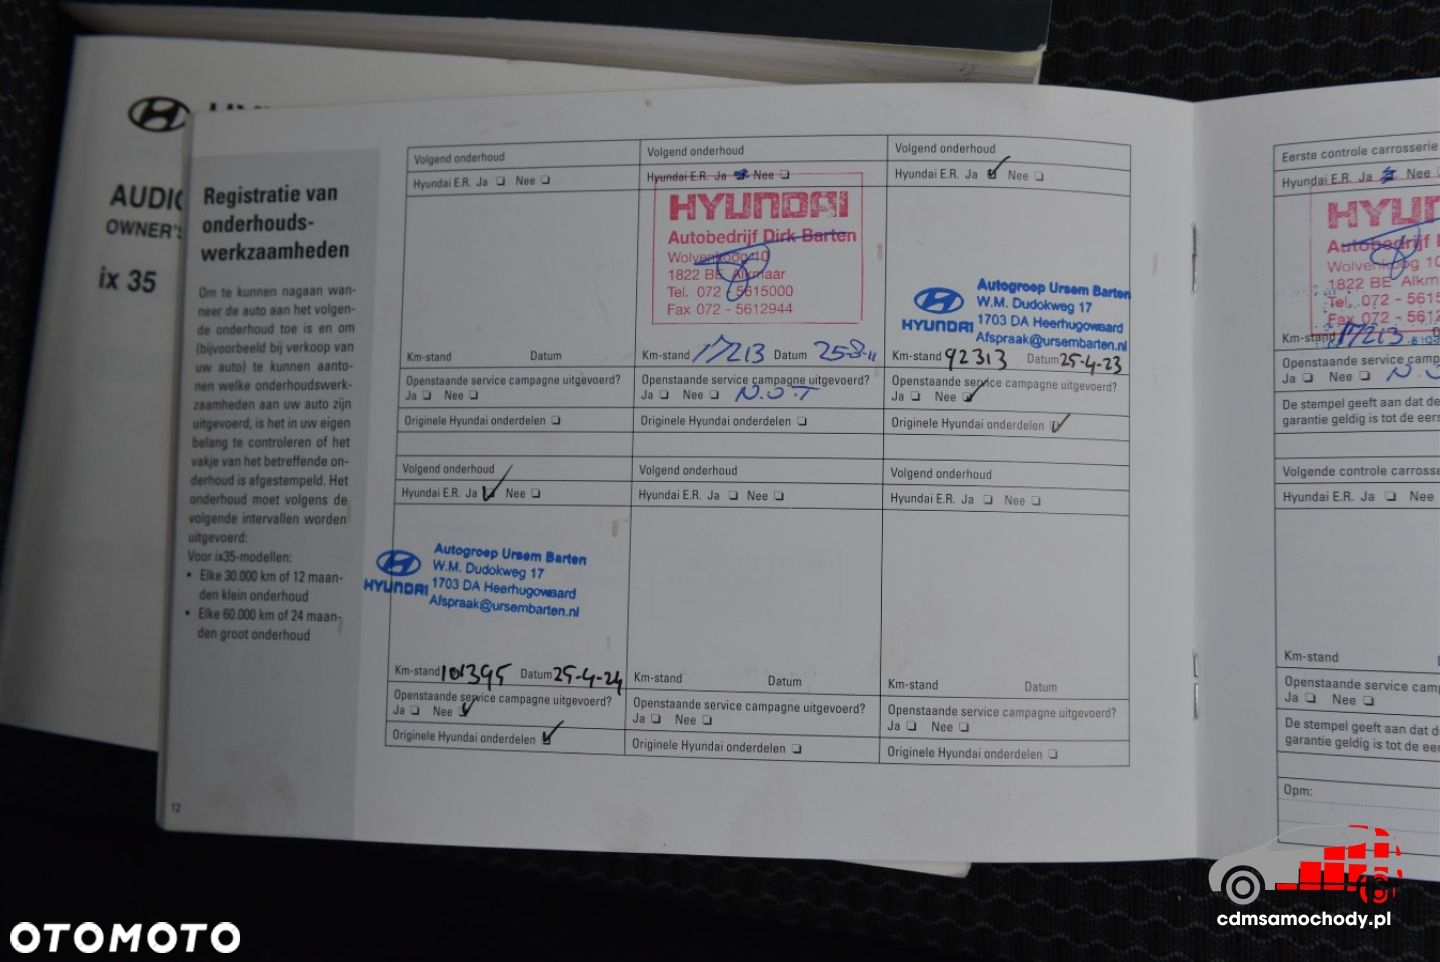 AUDIO
OWNER'S
ix 35
Registratie van
onderhouds-
werkzaamheden
Om te kunnen nagaan wan-
neer de auto aan het volgen-
de onderhoud toe is en om
(bijvoorbeeld bij verkoop van
uw auto) te kunnen aanto-
nen welke onderhoudswerk-
zaamheden aan uw auto zijn
uitgevoerd, is het in uw eigen
belang te controleren of het
vakje van het betreffende on-
derhoud is afgestempeld. Het
onderhoud moet volgens de
volgende intervallen worden
uitgevoerd:
Voor ix35-modellen:
• Elke 30.000 km of 12 maan-
den klein onderhoud
• Elke 60.000 km of 24 maan-
den groot onderhoud
12
Volgend onderhoud
Hyundai E.R. Ja ❏ Nee ❏
Km-stand Datum
Openstaande service campagne uitgevoerd?
Ja ❏ Nee ❏
Originele Hyundai onderdelen ❏
Volgend onderhoud
Hyundai E.R. Ja ❏ Nee ❏
HYUNDAI
Autobedrijf Dirk Barten
Wolvenkoog 10
1822 BE Alkmaar
Tel. 072 - 5615000
Fax 072 - 5612944
Km-stand 17213 Datum 25-8-11
Openstaande service campagne uitgevoerd?
Ja ❏ Nee ❏ N.O.T
Originele Hyundai onderdelen ❏
Volgend onderhoud
Hyundai E.R. Ja ❏ Nee ❏
HYUNDAI
Autogroep Ursem Barten
W.M. Dudokweg 17
1703 DA Heerhugowaard
Afspraak@ursembarten.nl
Km-stand 92313 Datum 25-4-23
Openstaande service campagne uitgevoerd?
Ja ❏ Nee ❏
Originele Hyundai onderdelen ❏
Volgend onderhoud
Hyundai E.R. Ja ❏ Nee ❏
HYUNDAI
Autogroep Ursem Barten
W.M. Dudokweg 17
1703 DA Heerhugowaard
Afspraak@ursembarten.nl
Km-stand 101395 Datum 25-4-24
Openstaande service campagne uitgevoerd?
Ja ❏ Nee ❏
Originele Hyundai onderdelen ❏
Volgend onderhoud
Hyundai E.R. Ja ❏ Nee ❏
Km-stand Datum
Openstaande service campagne uitgevoerd?
Ja ❏ Nee ❏
Originele Hyundai onderdelen ❏
Volgend onderhoud
Hyundai E.R. Ja ❏ Nee ❏
Km-stand Datum
Openstaande service campagne uitgevoerd?
Ja ❏ Nee ❏
Originele Hyundai onderdelen ❏
Eerste controle carrosserie
Hyundai E.R. Ja ❏ Nee
HYUN
Autobedrijf
Wolvenkoog 10
1822 BE Alkm
Tel. 072 - 561
Fax 072 - 561
Km-stand 17213
Openstaande service camp
Ja ❏ Nee ❏ N.O
De stempel geeft aan dat de
garantie geldig is tot de eers
Volgende controle carross
Hyundai E.R. Ja ❏ Nee
Km-stand
Openstaande service camp
Ja ❏ Nee ❏
De stempel geeft aan dat d
garantie geldig is tot de ee
Opm:
cdmsamochody.pl
OTOMOTO